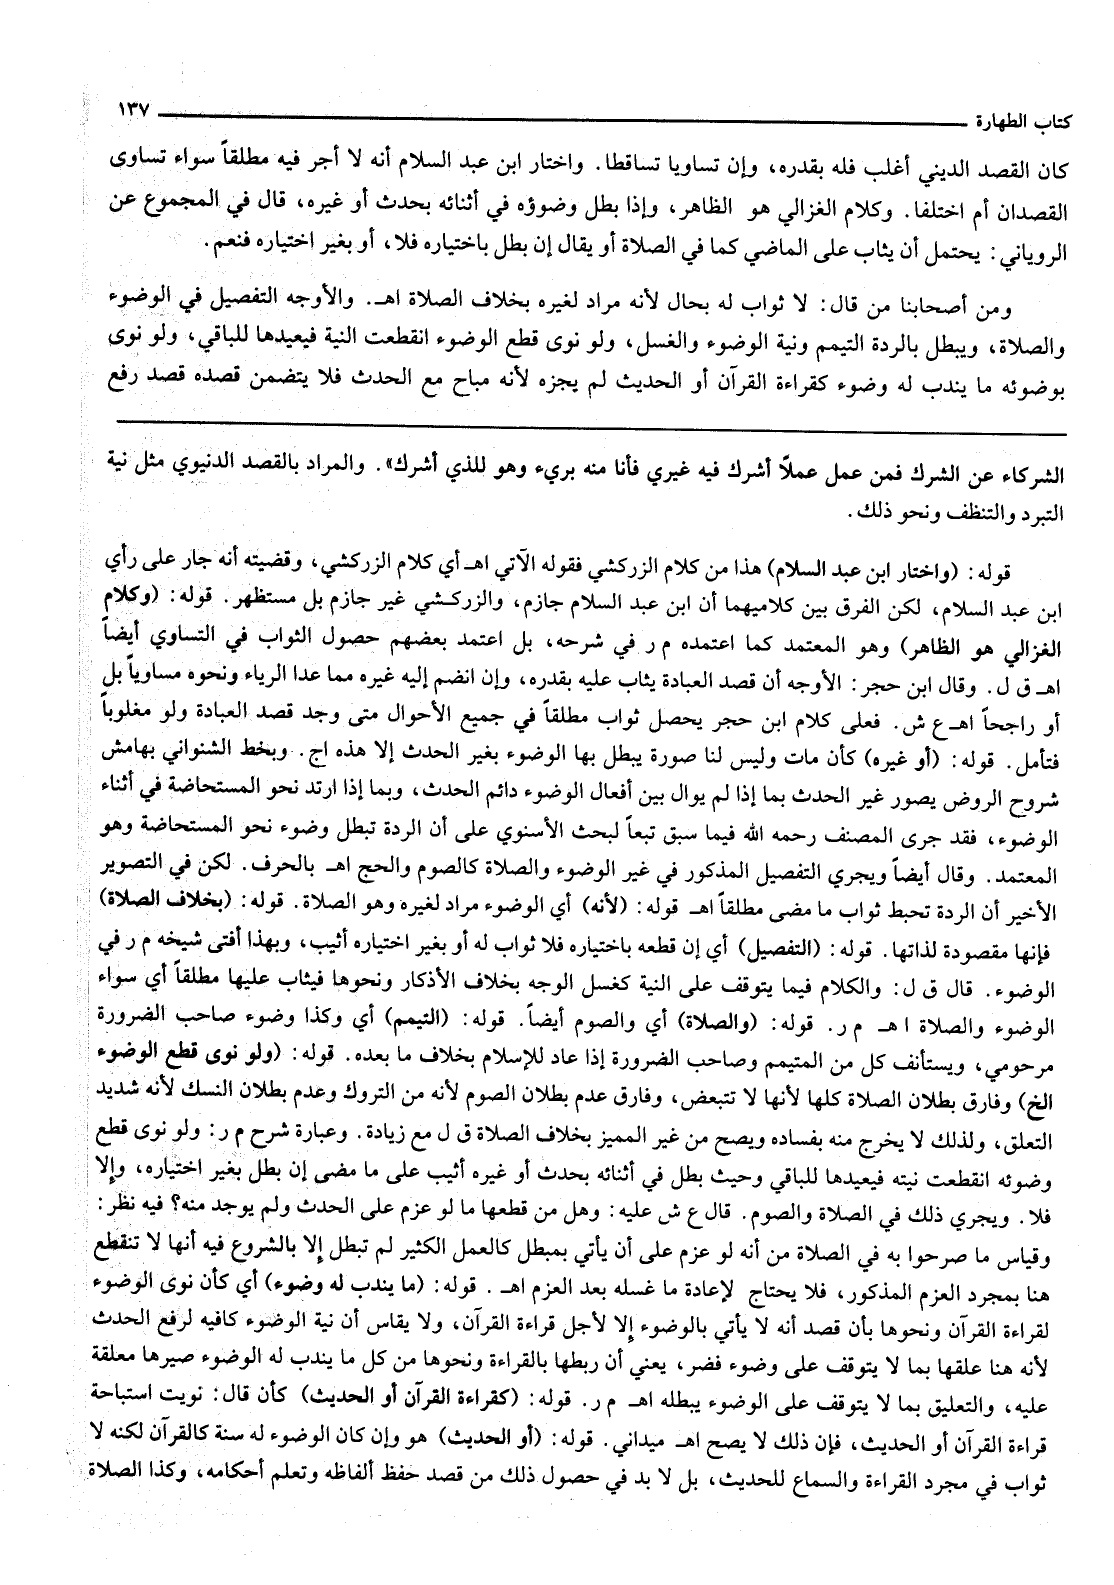 كتاب الطهارة ١٣٧
كان القصد الديني أغلب فله بقدره، وإن تساويا تساقطا. واختار ابن عبد السلام أنه لا أجر فيه مطلقاً سواء تساوى
القصدان أم اختلفا. وكلام الغزالي هو الظاهر، وإذا بطل وضوؤه في أثنائه بحدث أو غيره، قال في المجموع عن
الروياني: يحتمل أن يثاب على الماضي كما في الصلاة أو يقال إن بطل باختياره فلا، أو بغير اختياره فنعم.
ومن أصحابنا من قال: لا ثواب له بحال لأنه مراد لغيره بخلاف الصلاة اهـ. والأوجه التفصيل في الوضوء
والصلاة، ويبطل بالردة التيمم ونية الوضوء والغسل، ولو نوى قطع الوضوء انقطعت النية فيعيدها للباقي، ولو نوى
بوضوئه ما يندب له وضوء كقراءة القرآن أو الحديث لم يجزه لأنه مباح مع الحدث فلا يتضمن قصده قصد رفع
الشركاء عن الشرك فمن عمل عملاً أشرك فيه غيري فأنا منه بريء وهو للذي أشرك». والمراد بالقصد الدنيوي مثل نية
التبرد والتنظف ونحو ذلك.
قوله: (واختار ابن عبد السلام) هذا من كلام الزركشي فقوله الآتي اهـ أي كلام الزركشي، وقضيته أنه جار على رأي
ابن عبد السلام، لكن الفرق بين كلاميهما أن ابن عبد السلام جازم، والزركشي غير جازم بل مستظهر. قوله: (وكلام
الغزالي هو الظاهر) وهو المعتمد كما اعتمده م ر في شرحه، بل اعتمد بعضهم حصول الثواب في التساوي أيضاً
اهـ ق ل. وقال ابن حجر: الأوجه أن قصد العبادة يثاب عليه بقدره، وإن انضم إليه غيره مما عدا الرياء ونحوه مساوياً بل
أو راجحاً اهـ ع ش. فعلى كلام ابن حجر يحصل ثواب مطلقاً في جميع الأحوال متى وجد قصد العبادة ولو مغلوباً
فتأمل. قوله: (أو غيره) كأن مات وليس لنا صورة يبطل بها الوضوء بغير الحدث إلا هذه اج. وبخط الشنواني بهامش
شروح الروض يصور غير الحدث بما إذا لم يوال بين أفعال الوضوء دائم الحدث، وبما إذا ارتد نحو المستحاضة في أثناء
الوضوء، فقد جرى المصنف رحمه الله فيما سبق تبعاً لبحث الأسنوي على أن الردة تبطل وضوء نحو المستحاضة وهو
المعتمد. وقال أيضاً ويجري التفصيل المذكور في غير الوضوء والصلاة كالصوم والحج اهـ بالحرف. لكن في التصوير
الأخير أن الردة تحبط ثواب ما مضى مطلقاً اهـ قوله: (لأنه) أي الوضوء مراد لغيره وهو الصلاة. قوله: (بخلاف الصلاة)
فإنها مقصودة لذاتها. قوله: (التفصيل) أي إن قطعه باختياره فلا ثواب له أو بغير اختياره أثيب، وبهذا أفتى شيخه م ر في
الوضوء. قال ق ل: والكلام فيما يتوقف على النية كغسل الوجه بخلاف الأذكار ونحوها فيثاب عليها مطلقاً أي سواء
الوضوء والصلاة ا هـ م ر. قوله: (والصلاة) أي والصوم أيضاً. قوله: (التيمم) أي وكذا وضوء صاحب الضرورة
مرحومي، ويستأنف كل من المتيمم وصاحب الضرورة إذا عاد للإسلام بخلاف ما بعده. قوله: (ولو نوى قطع الوضوء
الخ) وفارق بطلان الصلاة كلها لأنها لا تتبعض، وفارق عدم بطلان الصوم لأنه من التروك وعدم بطلان النسك لأنه شديد
التعلق، ولذلك لا يخرج منه بفساده ويصح من غير المميز بخلاف الصلاة ق ل مع زيادة. وعبارة شرح م ر: ولو نوى قطع
وضوئه انقطعت نيته فيعيدها للباقي وحيث بطل في أثنائه بحدث أو غيره أثيب على ما مضى إن بطل بغير اختياره، وإلا
فلا. ويجري ذلك في الصلاة والصوم. قال ع ش عليه: وهل من قطعها ما لو عزم على الحدث ولم يوجد منه؟ فيه نظر:
وقياس ما صرحوا به في الصلاة من أنه لو عزم على أن يأتي بمبطل كالعمل الكثير لم تبطل إلا بالشروع فيه أنها لا تنقطع
هنا بمجرد العزم المذكور، فلا يحتاج لإعادة ما غسله بعد العزم اهـ. قوله: (ما يندب له وضوء) أي كأن نوى الوضوء
لقراءة القرآن ونحوها بأن قصد أنه لا يأتي بالوضوء إلا لأجل قراءة القرآن، ولا يقاس أن نية الوضوء كافيه لرفع الحدث
لأنه هنا علقها بما لا يتوقف على وضوء فضر، يعني أن ربطها بالقراءة ونحوها من كل ما يندب له الوضوء صيرها معلقة
عليه، والتعليق بما لا يتوقف على الوضوء يبطله اهـ م ر. قوله: (كقراءة القرآن أو الحديث) كأن قال: نويت استباحة
قراءة القرآن أو الحديث، فإن ذلك لا يصح اهـ ميداني. قوله: (أو الحديث) هو وإن كان الوضوء له سنة كالقرآن لكنه لا
ثواب في مجرد القراءة والسماع للحديث، بل لا بد في حصول ذلك من قصد حفظ ألفاظه وتعلم أحكامه، وكذا الصلاة